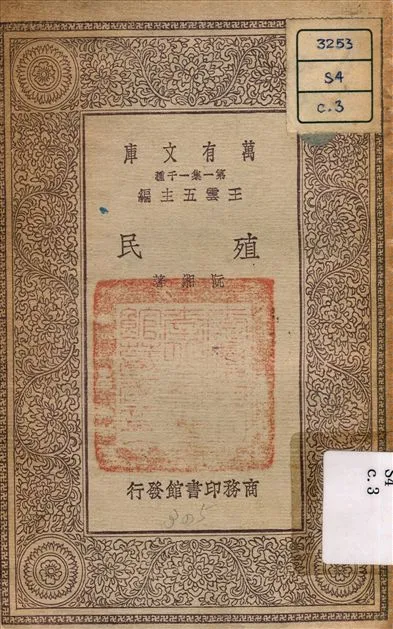 3253
S4
c.3
萬有文庫
第一集一千種
王雲五主編
殖民
阮湘著
商務印書館發行
305
S4
c.3